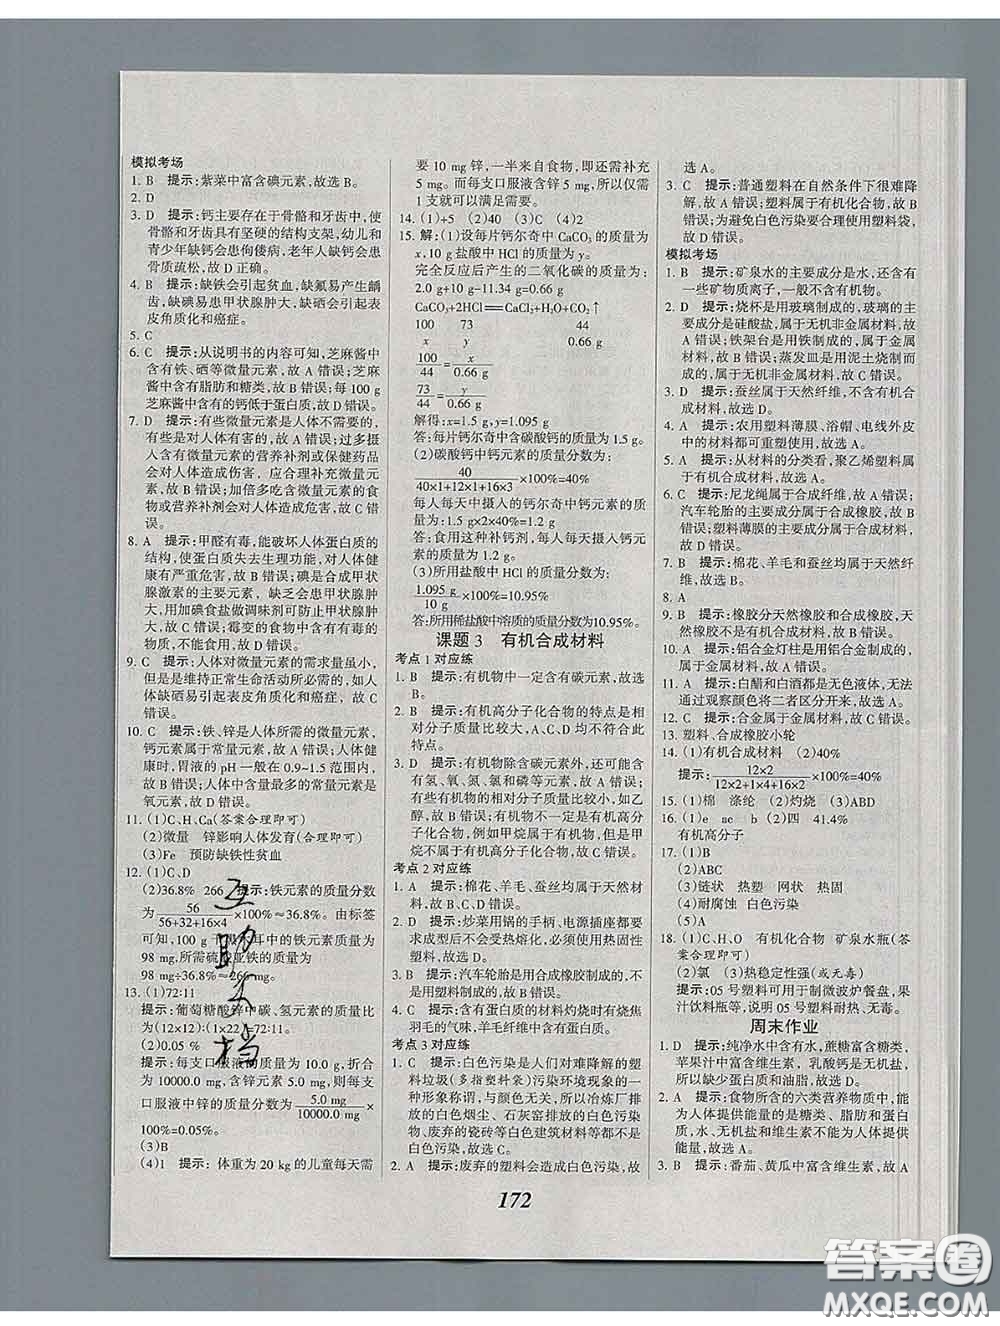 模拟考场
1. B 提示:紫菜中富含碘元素,故选 B。
2. D
3. D 提示:钙主要存在于骨骼和牙齿中,使
骨骼和牙齿具有坚硬的结构支架,幼儿和
青少年缺钙会患佝偻病,老年人缺钙会患
骨质疏松,故 D 正确。
4. B 提示:缺铁会引起贫血,缺氟易产生龋
齿,缺碘易患甲状腺肿大,缺硒会引起表
皮角质化和癌症。
5. C
6. C 提示:从说明书的内容可知,芝麻酱中
含有铁、硒等微量元素,故 A 错误;芝麻
酱中含有脂肪和糖类,故 B 错误;每 100 g
芝麻酱中含有的钙低于蛋白质,故 D 错误。
7. D 提示:有些微量元素是人体不需要的,
有些是对人体有害的,故 A 错误;过多摄
入含有微量元素的营养补剂或保健药品
会对人体造成伤害,应合理补充微量元
素,故 B 错误;加倍多吃含微量元素的食
物或营养补剂会对人体造成伤害,故 C 错
误。
8. A 提示:甲醛有毒,能破坏人体蛋白质的
结构,使蛋白质失去生理功能,对人体健
康有严重危害,故 B 错误;碘是合成甲状
腺激素的主要元素,缺乏会患甲状腺肿
大,用加碘食盐做调味剂可防止甲状腺肿
大,故 C 错误;霉变的食物中含有黄曲霉
毒素,不能食用,故 D 错误。
9. C 提示:人体对微量元素的需求量虽小,
但是是维持正常生命活动所必需的,如人
体缺硒易引起表皮角质化和癌症,故 C 错
误。
10. C 提示:铁、锌是人体所需的微量元素,
钙元素属于常量元素,故 A 错误;人体健
康时,胃液的 pH 一般在 0.9~1.5 范围内,
故 B 错误;人体中含量最多的常量元素是
氧元素,故 D 错误。
11. (1)C、H、Ca(答案合理即可)
(2)微量 锌影响人体发育(合理即可)
(3)Fe 预防缺铁性贫血
12. (1)C、D
(2)36.8% 266 提示:铁元素的质量分数
为 56/(56+32+16×4) ×100%≈36.8%。由标签
可知,100 g 干黑木耳中的铁元素质量为
98 mg,所需硫酸亚铁的质量为
98 mg÷36.8%≈266 mg。
13. (1)72∶11
提示:葡萄糖酸锌中碳、氢元素的质量比
为(12×12)∶(1×22)=72∶11。
(2)0.05 %
提示:每支口服液的质量为 10.0 g,折合
为 10000.0 mg,含锌元素 5.0 mg,则每支
口服液中锌的质量分数为 5.0 mg/10000.0 mg ×
100%=0.05%。
(3)B
(4)1 提示:体重为 20 kg 的儿童每天需
要 10 mg 锌,一半来自食物,即还需补充
5 mg。而每支口服液含锌 5 mg,所以仅需
1 支就可以满足需要。
14. (1)+5 (2)40 (3)C (4)2
15. 解:(1)设每片钙尔奇中 CaCO₃ 的质量为
x,10 g 盐酸中 HCl 的质量为 y。
完全反应后产生的二氧化碳的质量为:
2.0 g+10 g-11.34 g=0.66 g
CaCO₃+2HCl══CaCl₂+H₂O+CO₂↑
100 73 44
x y 0.66 g
100/44=x/0.66 g
73/44=y/0.66 g
解得:x=1.5 g,y=1.095 g
答:每片钙尔奇中含碳酸钙的质量为 1.5 g。
(2)碳酸钙中钙元素的质量分数为:
40/(40×1+12×1+16×3) ×100%=40%
每人每天中摄入的钙尔奇中钙元素的质
量为:1.5 g×2×40%=1.2 g
答:食用这种补钙剂,每人每天摄入钙元
素的质量为 1.2 g。
(3)所用盐酸中 HCl 的质量分数为:
1.095 g/10 g ×100%=10.95%
答:所用稀盐酸中溶质的质量分数为10.95%。
课题 3 有机合成材料
考点 1 对应练
1. B 提示:有机物中一定含有碳元素,故选
B。
2. B 提示:有机高分子化合物的特点是相
对分子质量比较大,A、C、D 均不符合此
特点。
3. D 提示:有机物除含碳元素外,还可能含
有氢、氧、氮、氯和磷等元素,故 A 错误;
有些有机物的相对分子质量比较小,如乙
醇,故 B 错误;有机化合物不一定是高分
子化合物,例如甲烷属于有机物,但是甲
烷不属于有机高分子化合物,故 C 错误。
考点 2 对应练
1. A 提示:棉花、羊毛、蚕丝均属于天然材
料,故选 A。
2. D 提示:炒菜用锅的手柄、电源插座都要
求成型后不能受热熔化,必须使用热固性
塑料,故选 D。
3. B 提示:汽车轮胎是用合成橡胶制成的,
不是用塑料制成的,故选 B。
4. C 提示:含有蛋白质的材料灼烧时有烧焦
羽毛的气味,羊毛纤维中含有蛋白质。
考点 3 对应练
1. C 提示:白色污染是人们对难降解的塑
料垃圾(多指塑料袋)污染环境现象的一
种形象称谓,与颜色无关,所以冶炼厂排
放的白色烟尘、石灰窑排放的白色粉
尘、废弃的瓷砖等白色建筑材料等都不是
白色污染。故选 C。
2. A 提示:废弃的塑料会造成白色污染,故
选 A。
3. C 提示:普通塑料在自然条件下很难降
解,故 A 错误;塑料属于有机化合物,故 B
错误;为避免白色污染要合理使用塑料袋,
故 D 错误。
模拟考场
1. B 提示:矿泉水的主要成分是水,还含有
一些矿物质离子,一般不含有机物。
2. D 提示:烧杯是用玻璃制成的,玻璃的主
要成分是硅酸盐,属于无机非金属材料,故
A 错误;铁架台是用铁制成的,属于金属
材料,故 B 错误;蒸发皿是用泥土烧制而
成的,属于无机非金属材料,故 C 错误。
3. D 提示:蚕丝属于天然纤维,不含有机合
成材料,故选 D。
4. A 提示:农用塑料薄膜、浴帽、电线外皮
中的材料都可重塑使用。故选 A。
5. A 提示:从材料的分类看,聚乙烯塑料属
于有机合成材料,故选 A。
6. C 提示:尼龙绳属于合成纤维,故 A 错误;
汽车轮胎的主要成分属于合成橡胶,故 B
错误;塑料薄膜的主要成分属于合成材料,
故 D 错误。
7. B 提示:棉花、羊毛和蚕丝均属于天然纤
维,故选 B。
8. A
9. B 提示:橡胶分天然橡胶和合成橡胶,天
然橡胶不是有机合成材料,故 B 错误。
10. A 提示:铝合金灯柱是用铝合金制成的,
属于金属材料,故选 A。
11. A 提示:白醋和白酒都是无色液体,无法
通过观察颜色将二者区分开来,故选 A。
12. C 提示:合金属于金属材料,故 C 错误。
13. 塑料、合成橡胶小轮
14. (1)有机合成材料 (2)40%
提示: 12×2/(12×2+1×4+16×2) ×100%=40%
15. (1)棉 涤纶 (2)灼烧 (3)ABD
16. (1)e ae b (2)四 41.4%
有机高分子
17. (1)B
(2)ABC
(3)链状 热塑 网状 热固
(4)耐腐蚀 白色污染
(5)A
18. (1)C、H、O 有机化合物 矿泉水瓶(答
案合理即可)
(2)氯 (3)热稳定性强(或无毒)
提示:05 号塑料可用于制微波炉餐盘,果
汁饮料瓶等,说明 05 号塑料耐热、无毒。
周末作业
1. D 提示:纯净水中含有水,蔗糖富含糖类,
苹果汁中富含维生素,乳酸钙是无机盐,
所以缺少蛋白质和油脂,故选 D。
2. A 提示:食物所含的六类营养物质中,能
为人体提供能量的是糖类、脂肪和蛋白
质,水、无机盐和维生素不能为人体提供
能量,故选 A。
3. B 提示:番茄、黄瓜中富含维生素,故 A
互
助
文
档
172
答案圈
MXQE.COM